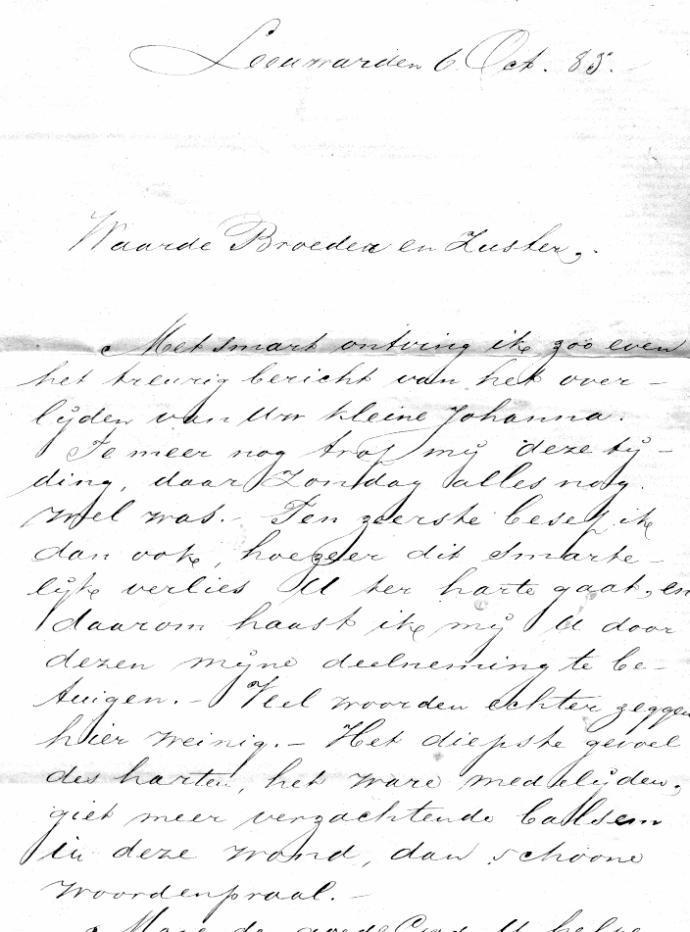 Leeuwarden 6 Oct. 85.
Waarde Broeder en Zuster,.
Met smart ontving ik zoo even
het treurig bericht van het over-
lijden van Uw kleine Johanna.
Te meer nog trof mij deze tij-
ding, daar Zondag alles nog
wel was.- Ten zeerste besef ik
dan ook, hoezeer dit smarte-
lijk verlies U ter harte gaat, en
daarom haast ik mij U door
dezen mijne deelneming te be-
tuigen.- Veel woorden echter zeggen
hier weinig.- Het diepste gevoel
des harten, het ware medelijden,
giet meer verzachtende balsem
in deze wond, dan schoone
woordenpraal.-
Moge de goede God U helpe